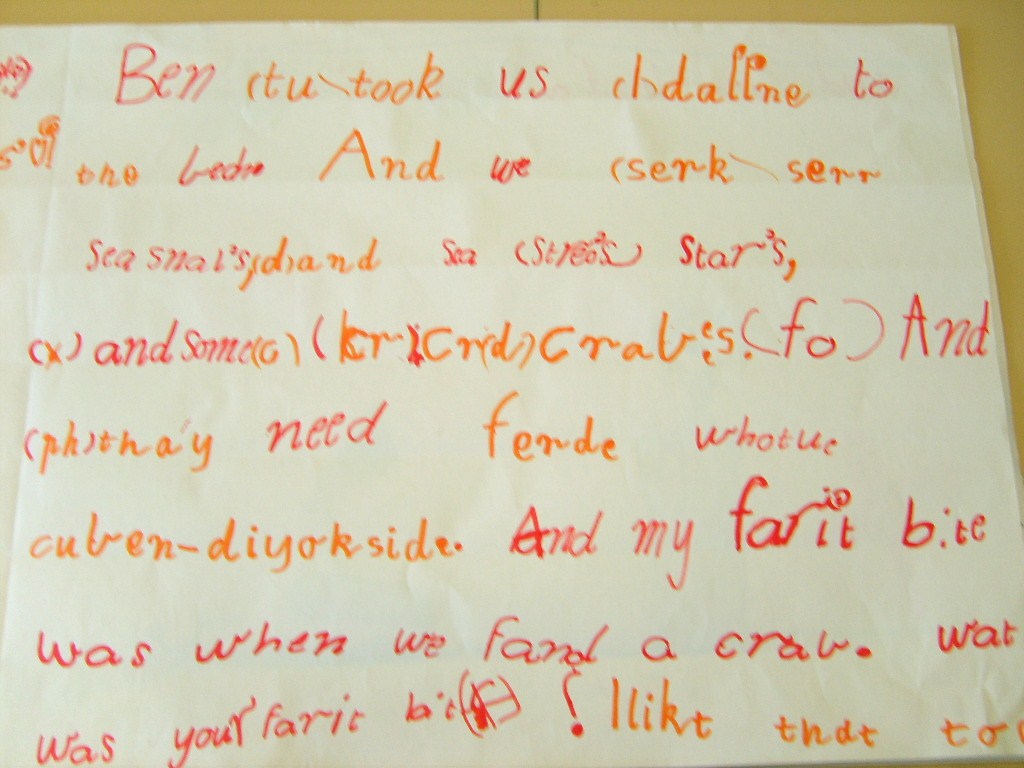 Ben (tu) took us (h)dallne to
the And we (serk) serr
sea snal's,(d)and sea (streo's) star's,
(x) and some(c) (kr)(Cr(d) Crab's. (fo) And
(ph)tha'y need fende whotue
cuben-diyokside. And my farit bite
was when we fand a crab. wat
was your farit bit ! I likt that